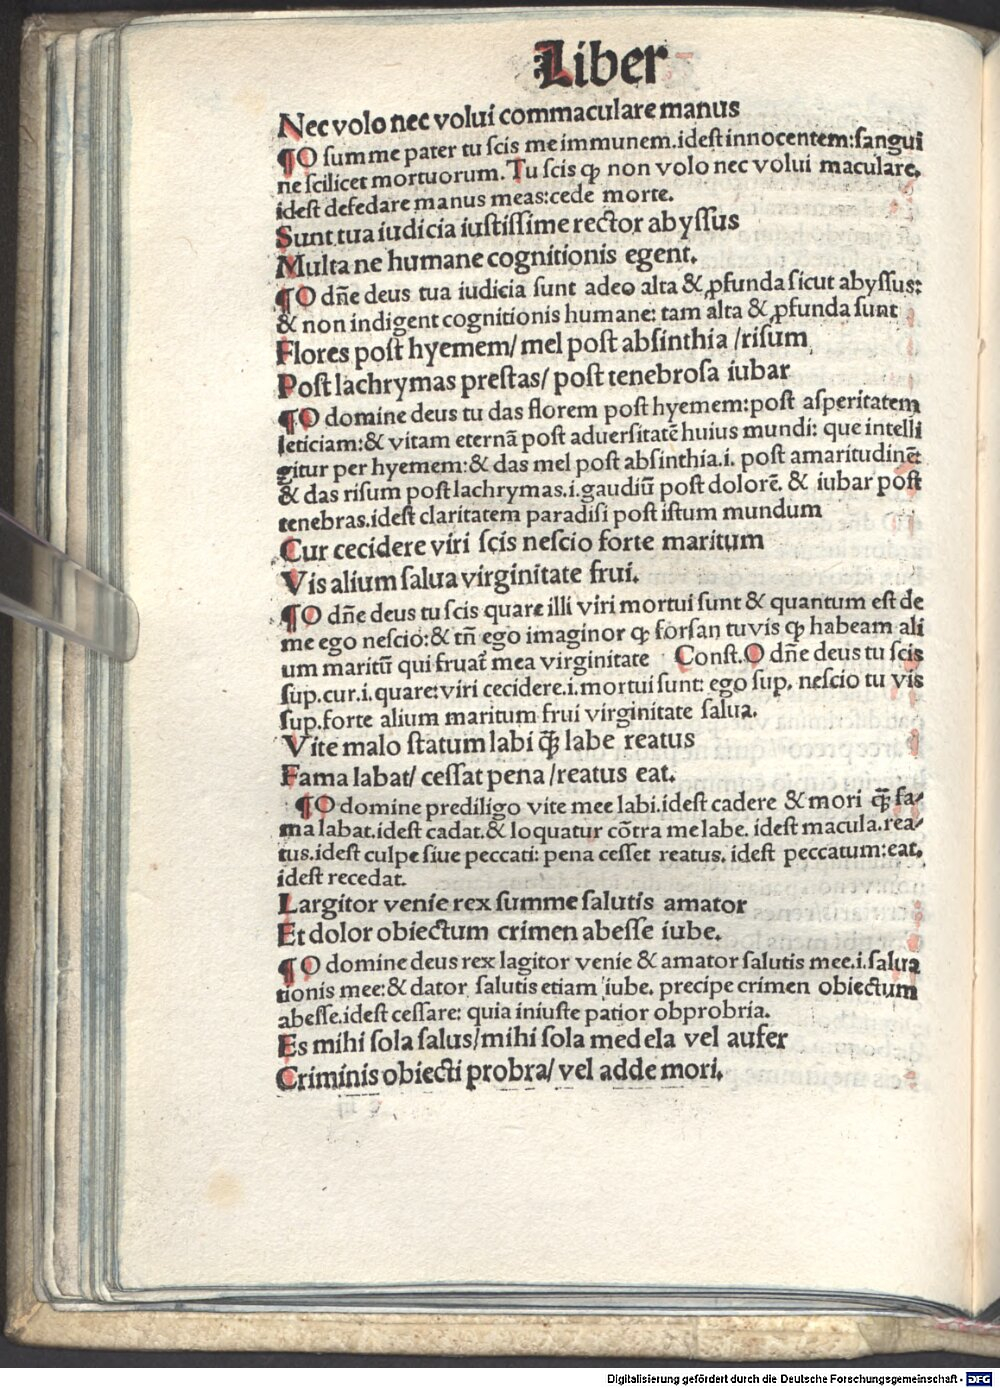 Liber
Nec volo nec volui commaculare manus
¶O summe pater tu scis me immunem.idest innocentem:sangui
ne scilicet mortuorum.Tu scis ꝙ non volo nec volui maculare.
idest defedare manus meas:cede morte.
Sunt tua iudicia iustissime rector abyssus
Multa ne humane cognitionis egent.
¶O dñe deus tua iudicia sunt adeo alta & ꝓfunda sicut abyssus:
& non indigent cognitionis humane: tam alta & ꝓfunda sunt
Flores post hyemem/ mel post absinthia /risum
Post lachrymas prestas/ post tenebrosa iubar
¶O domine deus tu das florem post hyemem:post asperitatem
leticiam:& vitam eternã post aduersitatẽ huius mundi: que intelli
gitur per hyemem:& das mel post absinthia.i. post amaritudinẽ:
& das risum post lachrymas.i.gaudiũ post dolorẽ. & iubar post
tenebras.idest claritatem paradisi post istum mundum
Cur cecidere viri scis nescio forte maritum
Vis alium salua virginitate frui.
¶O dñe deus tu scis quare illi viri mortui sunt & quantum est de
me ego nescio:& tñ ego imaginor ꝙ forsan tu vis ꝙ habeam ali
um maritũ qui fruat᷑ mea virginitate Const.O dñe deus tu scis
sup.cur.i.quare:viri cecidere.i.mortui sunt: ego sup. nescio tu vis
sup.forte alium maritum frui virginitate salua.
Vite malo statum labi q̃ꝫ labe reatus
Fama labat/ cessat pena /reatus eat.
¶O domine prediligo vite mee labi.idest cadere & mori q̃ꝫ fa⸗
ma labat.idest cadat.& loquatur cõtra me labe. idest macula.rea⸗
tus.idest culpe siue peccati: pena cesset reatus. idest peccatum:eat.
idest recedat.
Largitor venie rex summe salutis amator
Et dolor obiectum crimen abesse iube.
¶O domine deus rex lagitor venie & amator salutis mee.i.salua
tionis mee:& dator salutis etiam iube. precipe crimen obiectum
abesse.idest cessare: quia iniuste patior obprobria.
Es mihi sola salus/mihi sola medela vel aufer
Criminis obiecti probra/ vel adde mori.
Digitalisierung gefördert durch die Deutsche Forschungsgemeinschaft - DFG